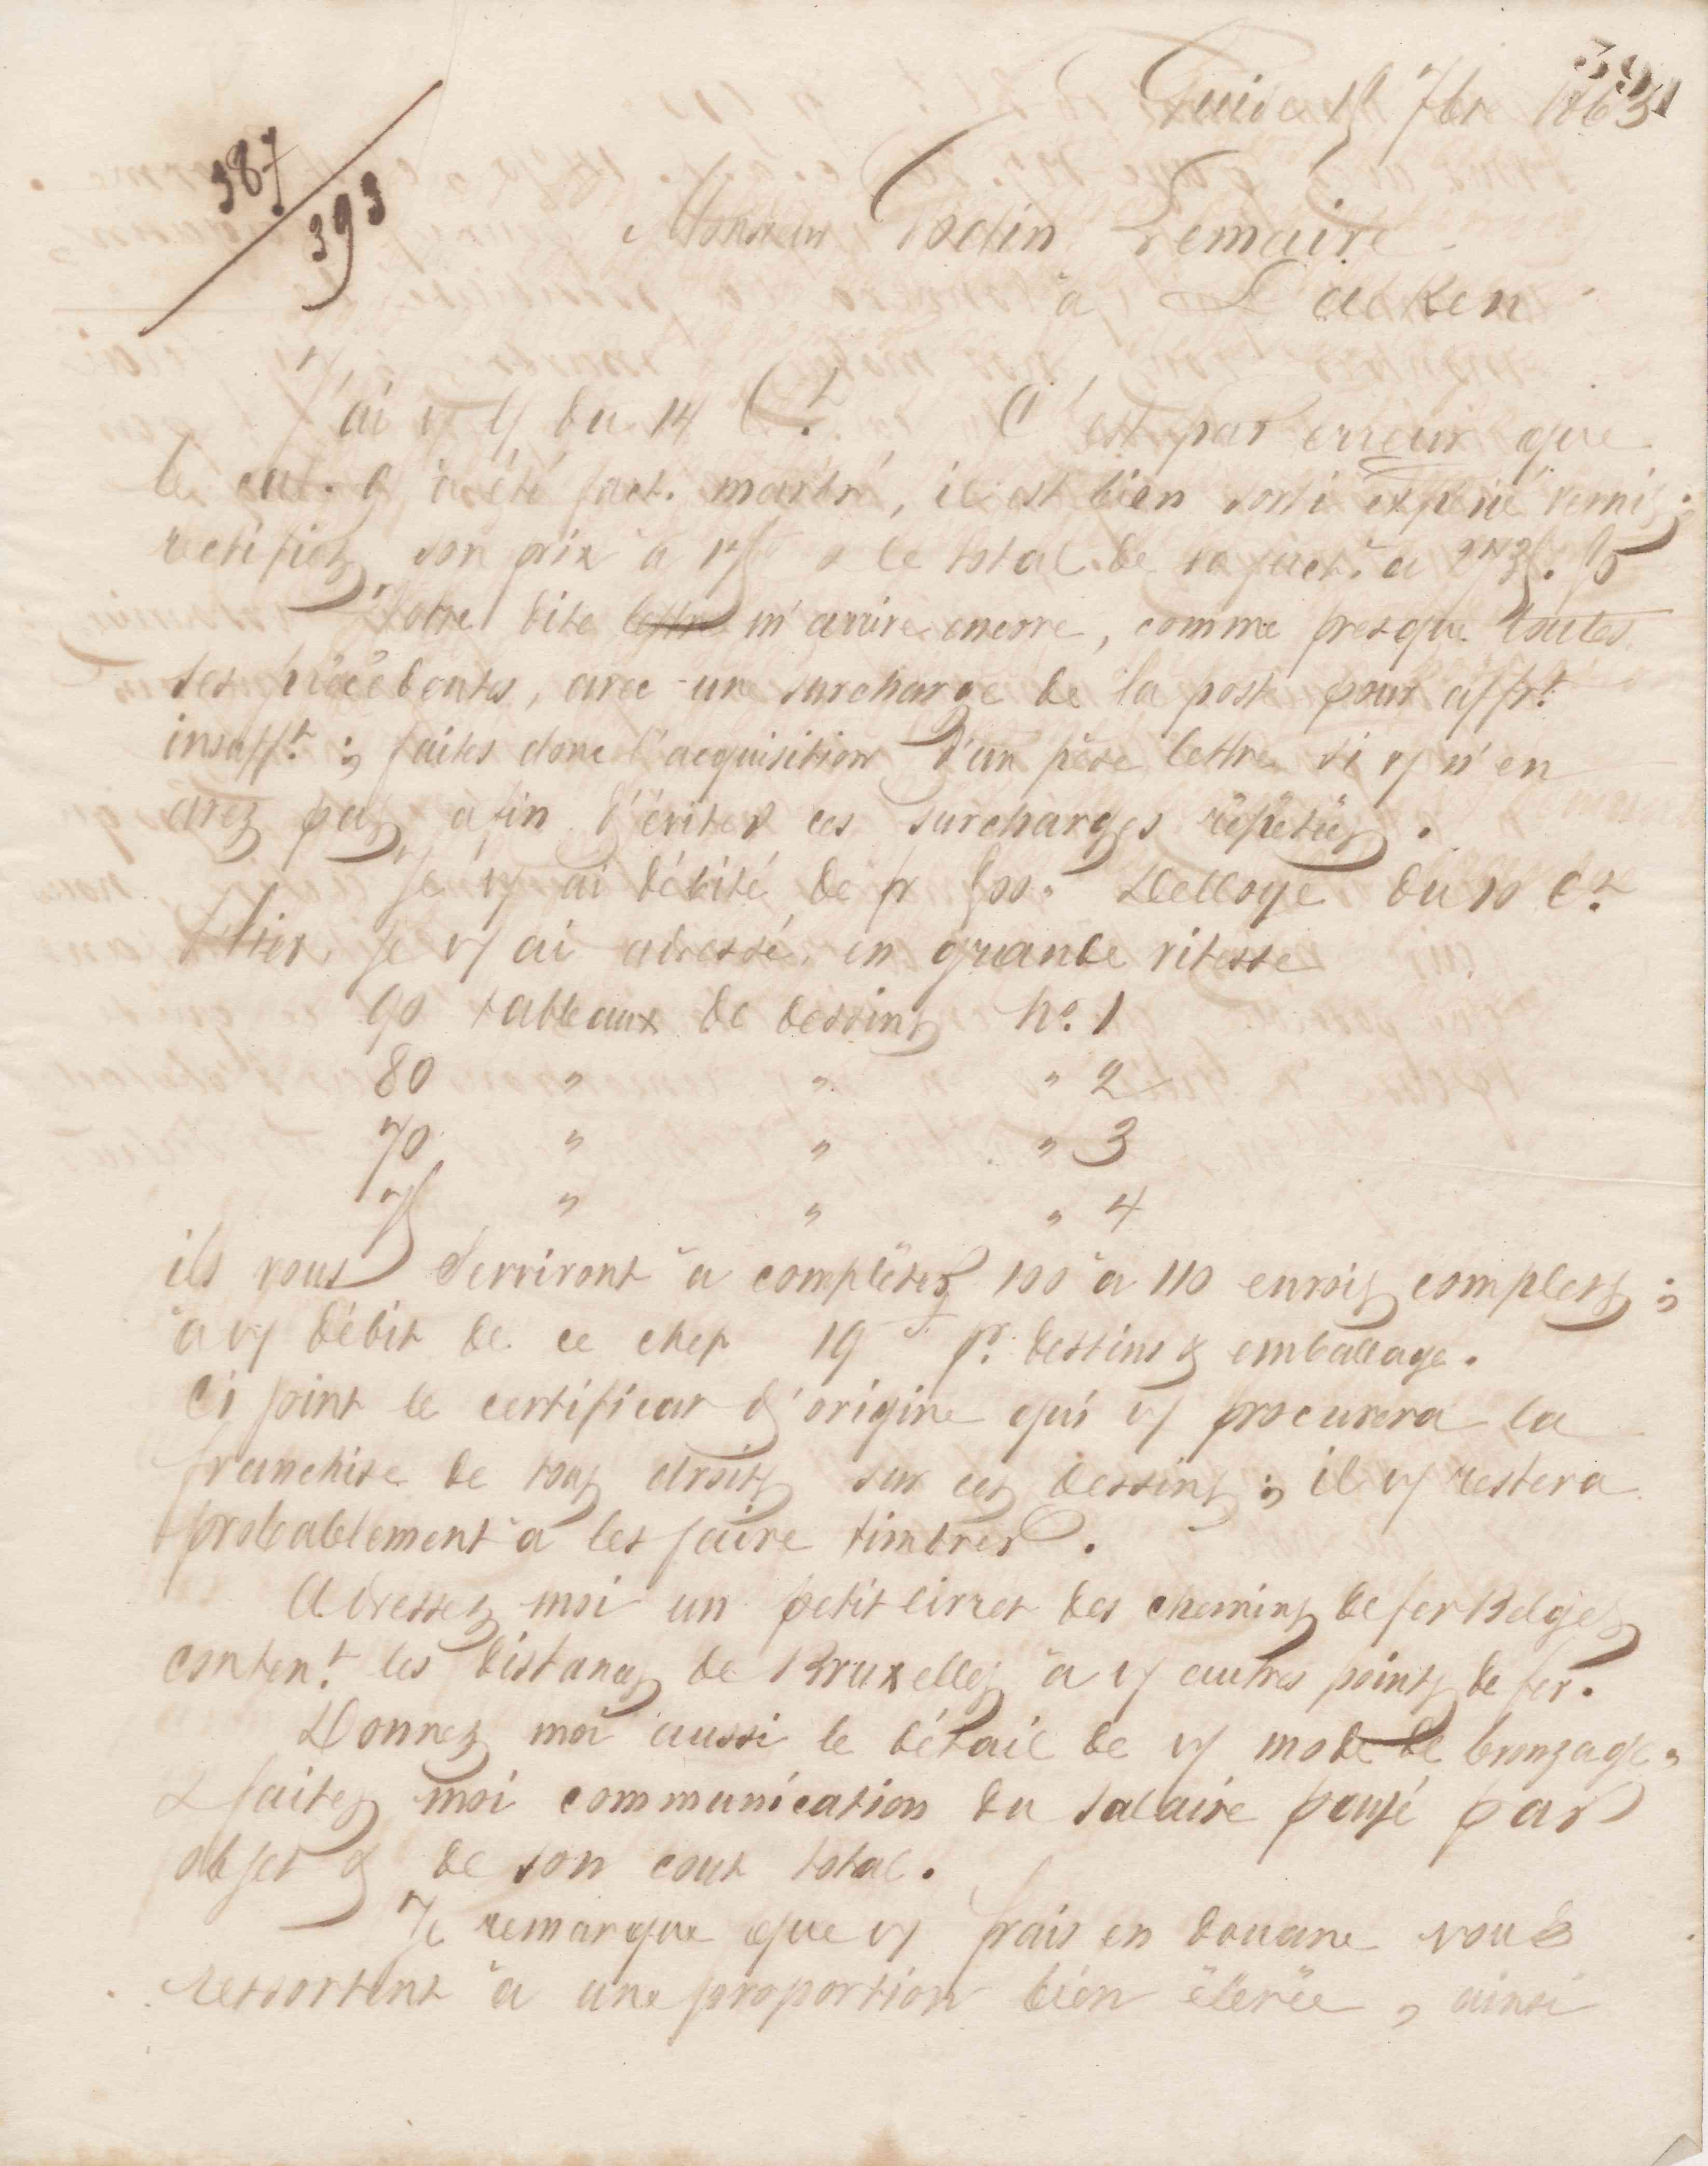 391
Guise 15 7bre 1863
387
393
Monsieur Godin Lemaire
à Laeken
J'ai v/ l/ du 14 Ct. C'est par erreur que
le cal. 9 a été fact. marbré, il est bien sorti expédié vernis :
rectifiez son prix à & le total de la fact. à
Votre dite lettre m'arrive encore, comme presque toutes
ses précédentes, avec une surcharge de la poste pour affrt.
insufft. ; faites donc l'acquisition d'un pèse lettre si v/ n'en
avez pas, afin d'éviter ces surcharges répétées.
Je v/ ai débité de f 500. Delloye du 10 Ct.
Hier, je v/ ai adressé, en grande vitesse
90 tableaux de dessins No. 1
80 " " " 2
70 " " " 3
75 " " " 4
ils vous serviront à compléter 100 à 110 envois complets ;
à v/ débit de ce chef 19 f. pr. dessins & emballage.
Ci joint le certificat d'origine qui v/ procurera la
franchise de tous droits sur ces dessins ; il v/ restera
probablement à les faire timbrer.
Adressez moi un petit livret des chemins de fer Belges
conten.t les distances de Bruxelles à v/ autres points de fer.
Donnez moi aussi le détail de v/ mode de bronzage,
& faites moi communication du salaire payé par
objet & de son cout total.
Je remarque que v/ frais en douane vous
ressortent à une proportion bien élevée, ainsi